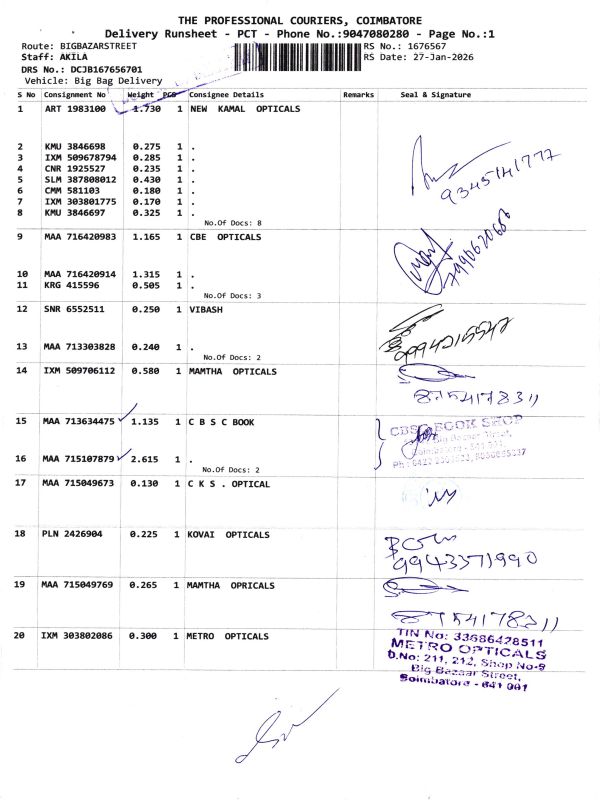 THE PROFESSIONAL COURIERS, COIMBATORE
Delivery Runsheet - PCT - Phone No.:9047080280 - Page No.:1
Route: BIGBAZARSTREET RS No.: 1676567
Staff: AKILA RS Date: 27-Jan-2026
DRS No.: DCJB167656701
Vehicle: Big Bag Delivery
S No Consignment No Weight PCS Consignee Details Remarks Seal & Signature
1 ART 1983100 1.730 1 NEW KAMAL OPTICALS
2 KMU 3846698 0.275 1 .
3 IXM 509678794 0.285 1 .
4 CNR 1925527 0.235 1 .
5 SLM 387808012 0.430 1 .
6 CMM 581103 0.180 1 .
7 IXM 303801775 0.170 1 .
8 KMU 3846697 0.325 1 .
No.Of Docs: 8
9 MAA 716420983 1.165 1 CBE OPTICALS
10 MAA 716420914 1.315 1 .
11 KRG 415596 0.505 1 .
No.Of Docs: 3
12 SNR 6552511 0.250 1 VIBASH
13 MAA 713303828 0.240 1 .
No.Of Docs: 2
14 IXM 509706112 0.580 1 MAMTHA OPTICALS
8754178311
15 MAA 713634475 1.135 1 C B S C BOOK
CBSC BOOK SHOP
Big Bazaar Street,
Coimbatore - 641 001.
16 MAA 715107879 2.615 1 .
No.Of Docs: 2
17 MAA 715049673 0.130 1 C K S . OPTICAL
18 PLN 2426904 0.225 1 KOVAI OPTICALS
9943371990
19 MAA 715049769 0.265 1 MAMTHA OPRICALS
8754178311
20 IXM 303802086 0.300 1 METRO OPTICALS
TIN No: 33686428511
METRO OPTICALS
D.No: 211, 212, Shop No-9
Big Bazaar Street,
Coimbatore - 641 001